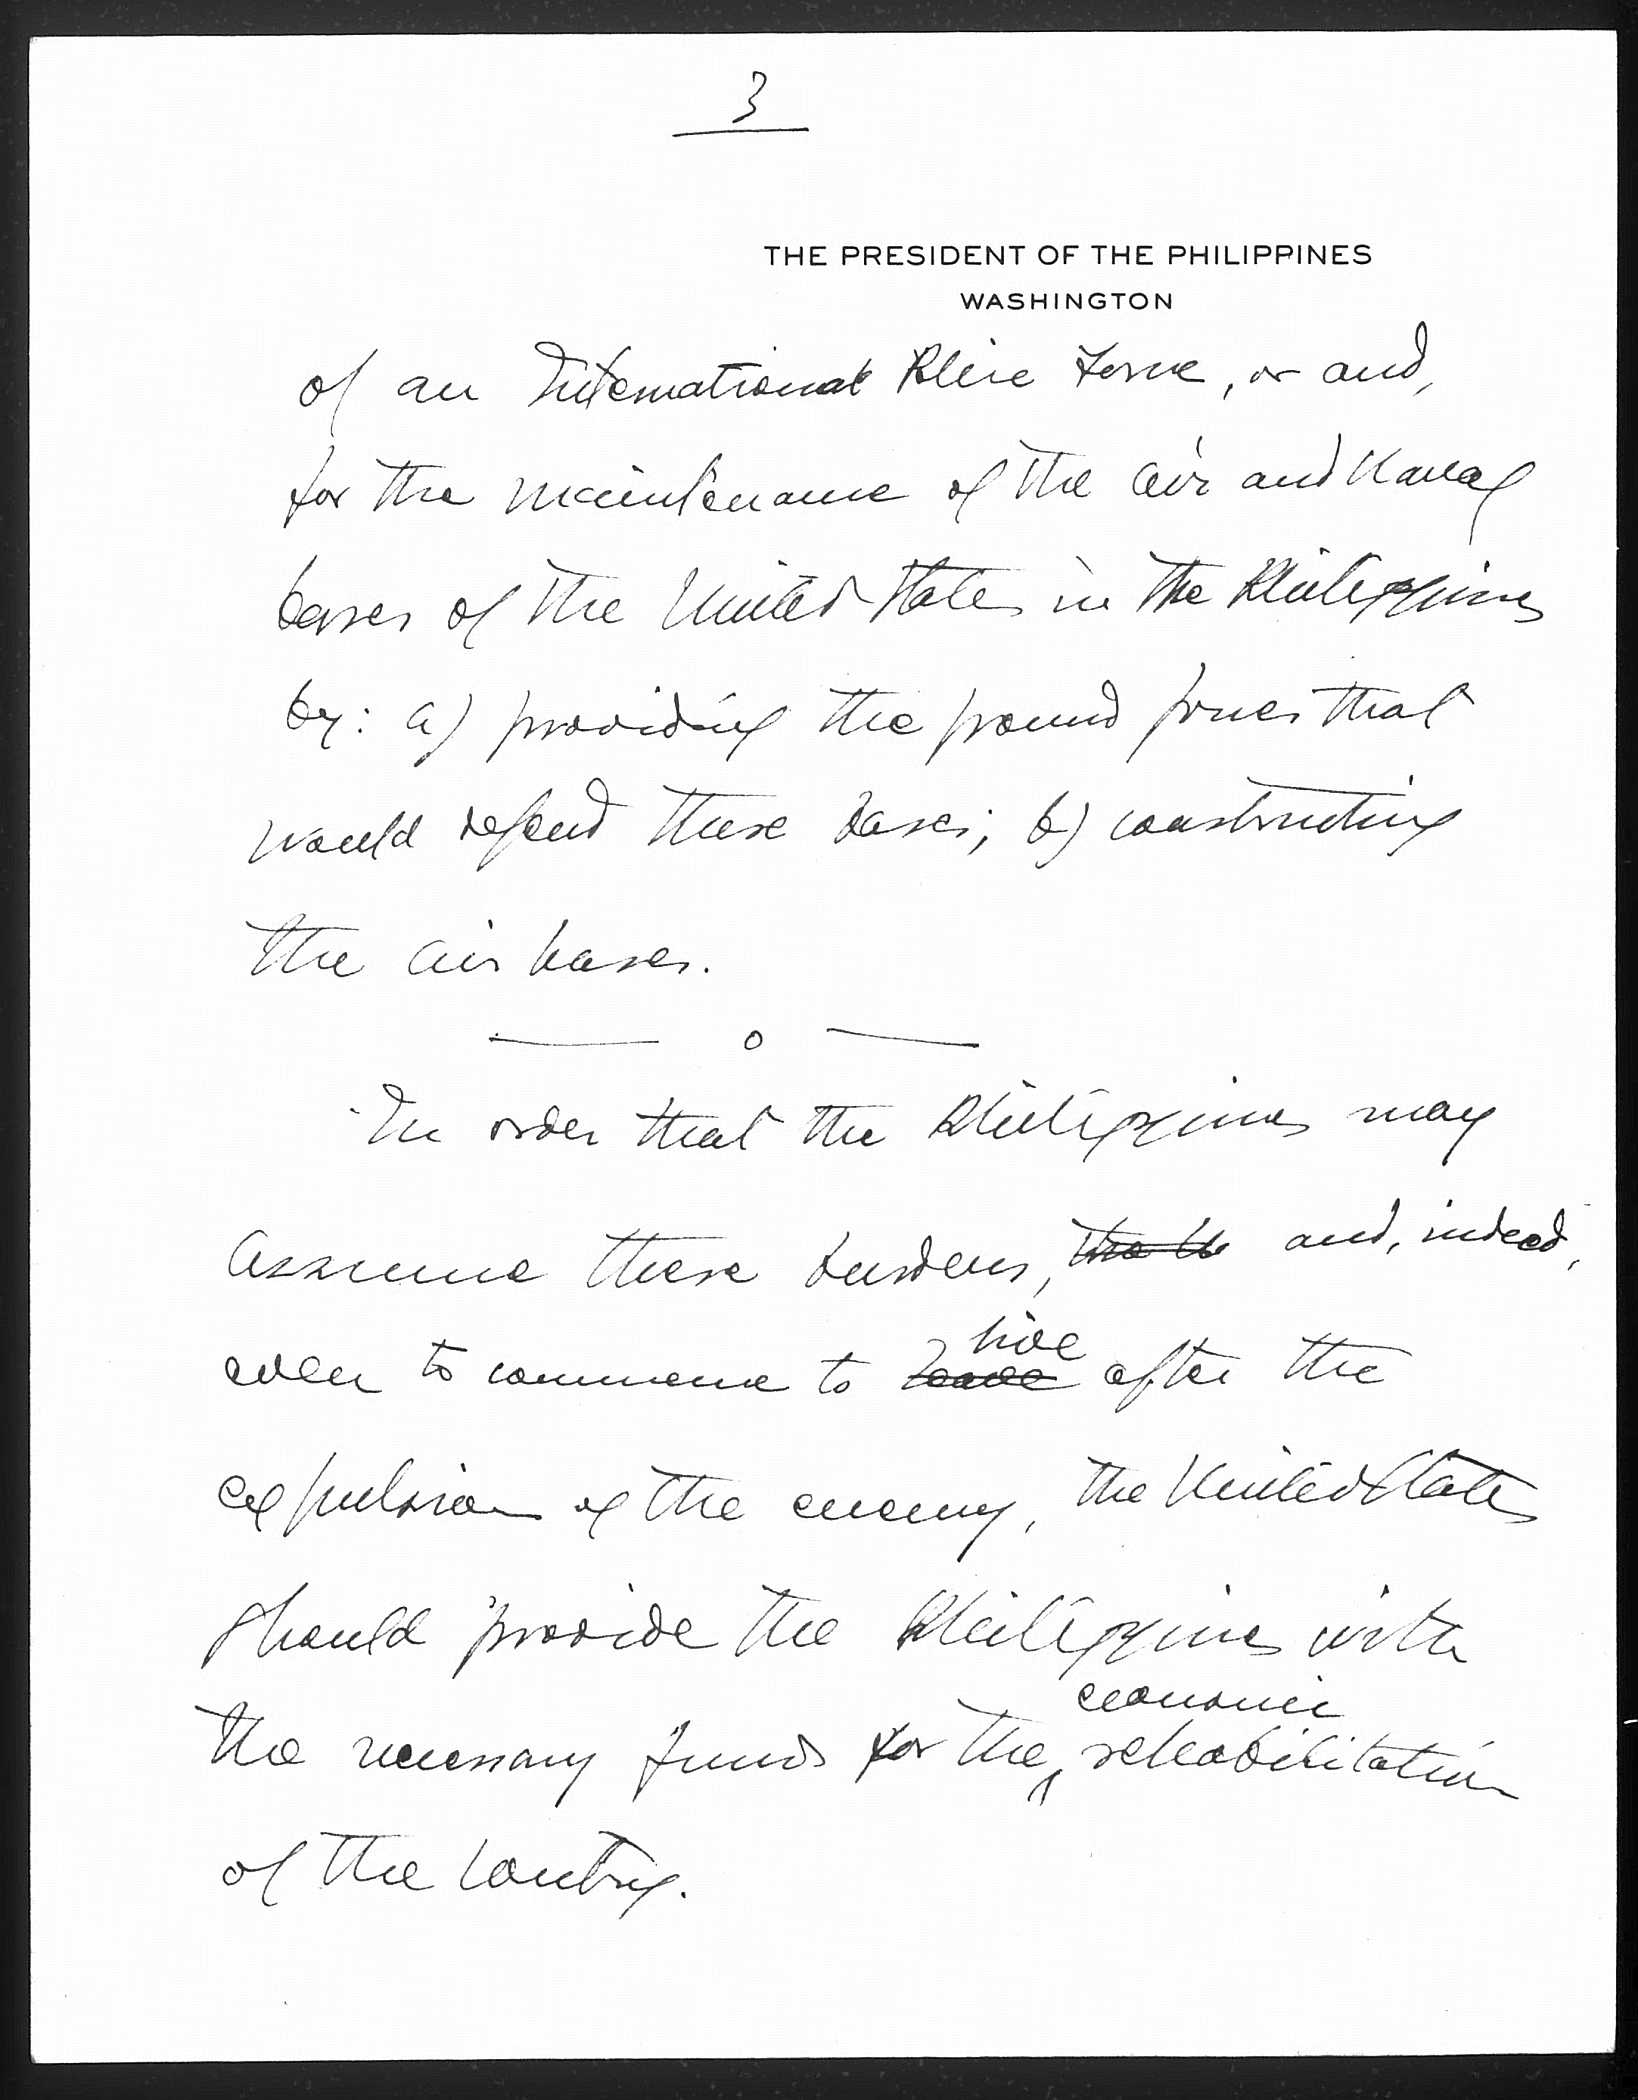 3
THE PRESIDENT OF THE PHILIPPINES
WASHINGTON
of an International Police Force, or and,
for the maintenance of the air and naval
bases of the United States in the Philippines
by: a) providing the ground forces that
would defend these bases; b) constructing
the air bases.
— o —
In order that the Philippines may
assume these burdens, and, indeed,
even to commence to
live
leave after the
expulsion of the enemy, the United States
should provide the Philippines with
economic
the necessary funds for the rehabilitation
of the country.